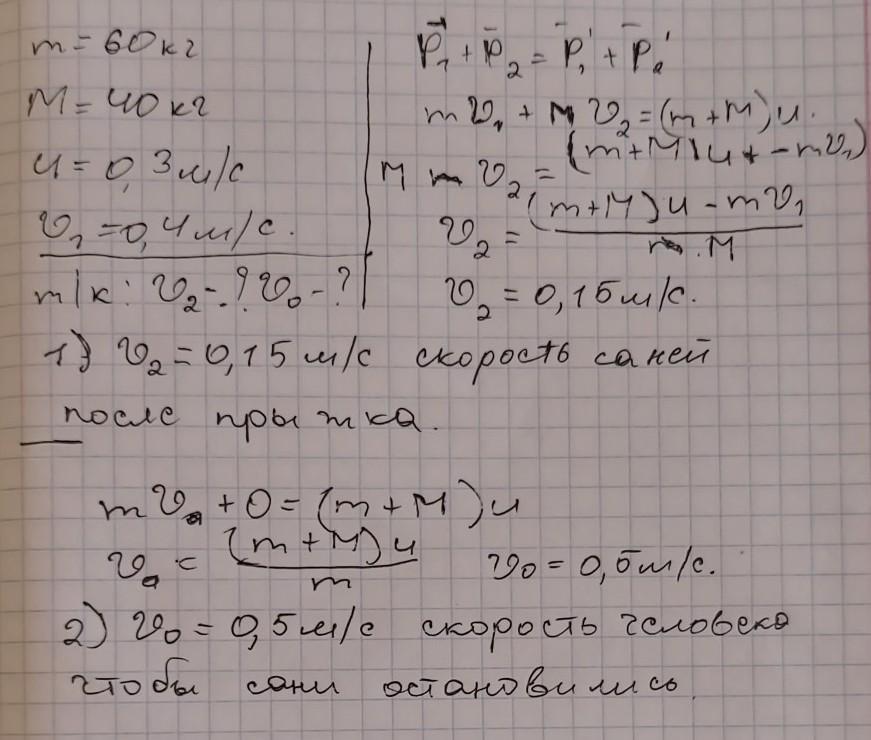 m = 60 кг
M = 40 кг
u = 0,3 м/с
v₁ = 0,4 м/с.
m/к: v₂ -.? v₀ - ?
p⃗₁ + p̅₂ = p̅₁' + p̅₂'
m v₁ + M v₂ = (m + M) u.
M v₂ = (m + M) u + - m v₁)
v₂ = (m + M) u - m v₁ / M
v₂ = 0,15 м/с.
1) v₂ = 0,15 м/с скорость саней
после прыжка.
m v₀ + 0 = (m + M) u
v₀ = (m + M) u / m v₀ = 0,5 м/с.
2) v₀ = 0,5 м/с скорость человека
чтобы сани остановились